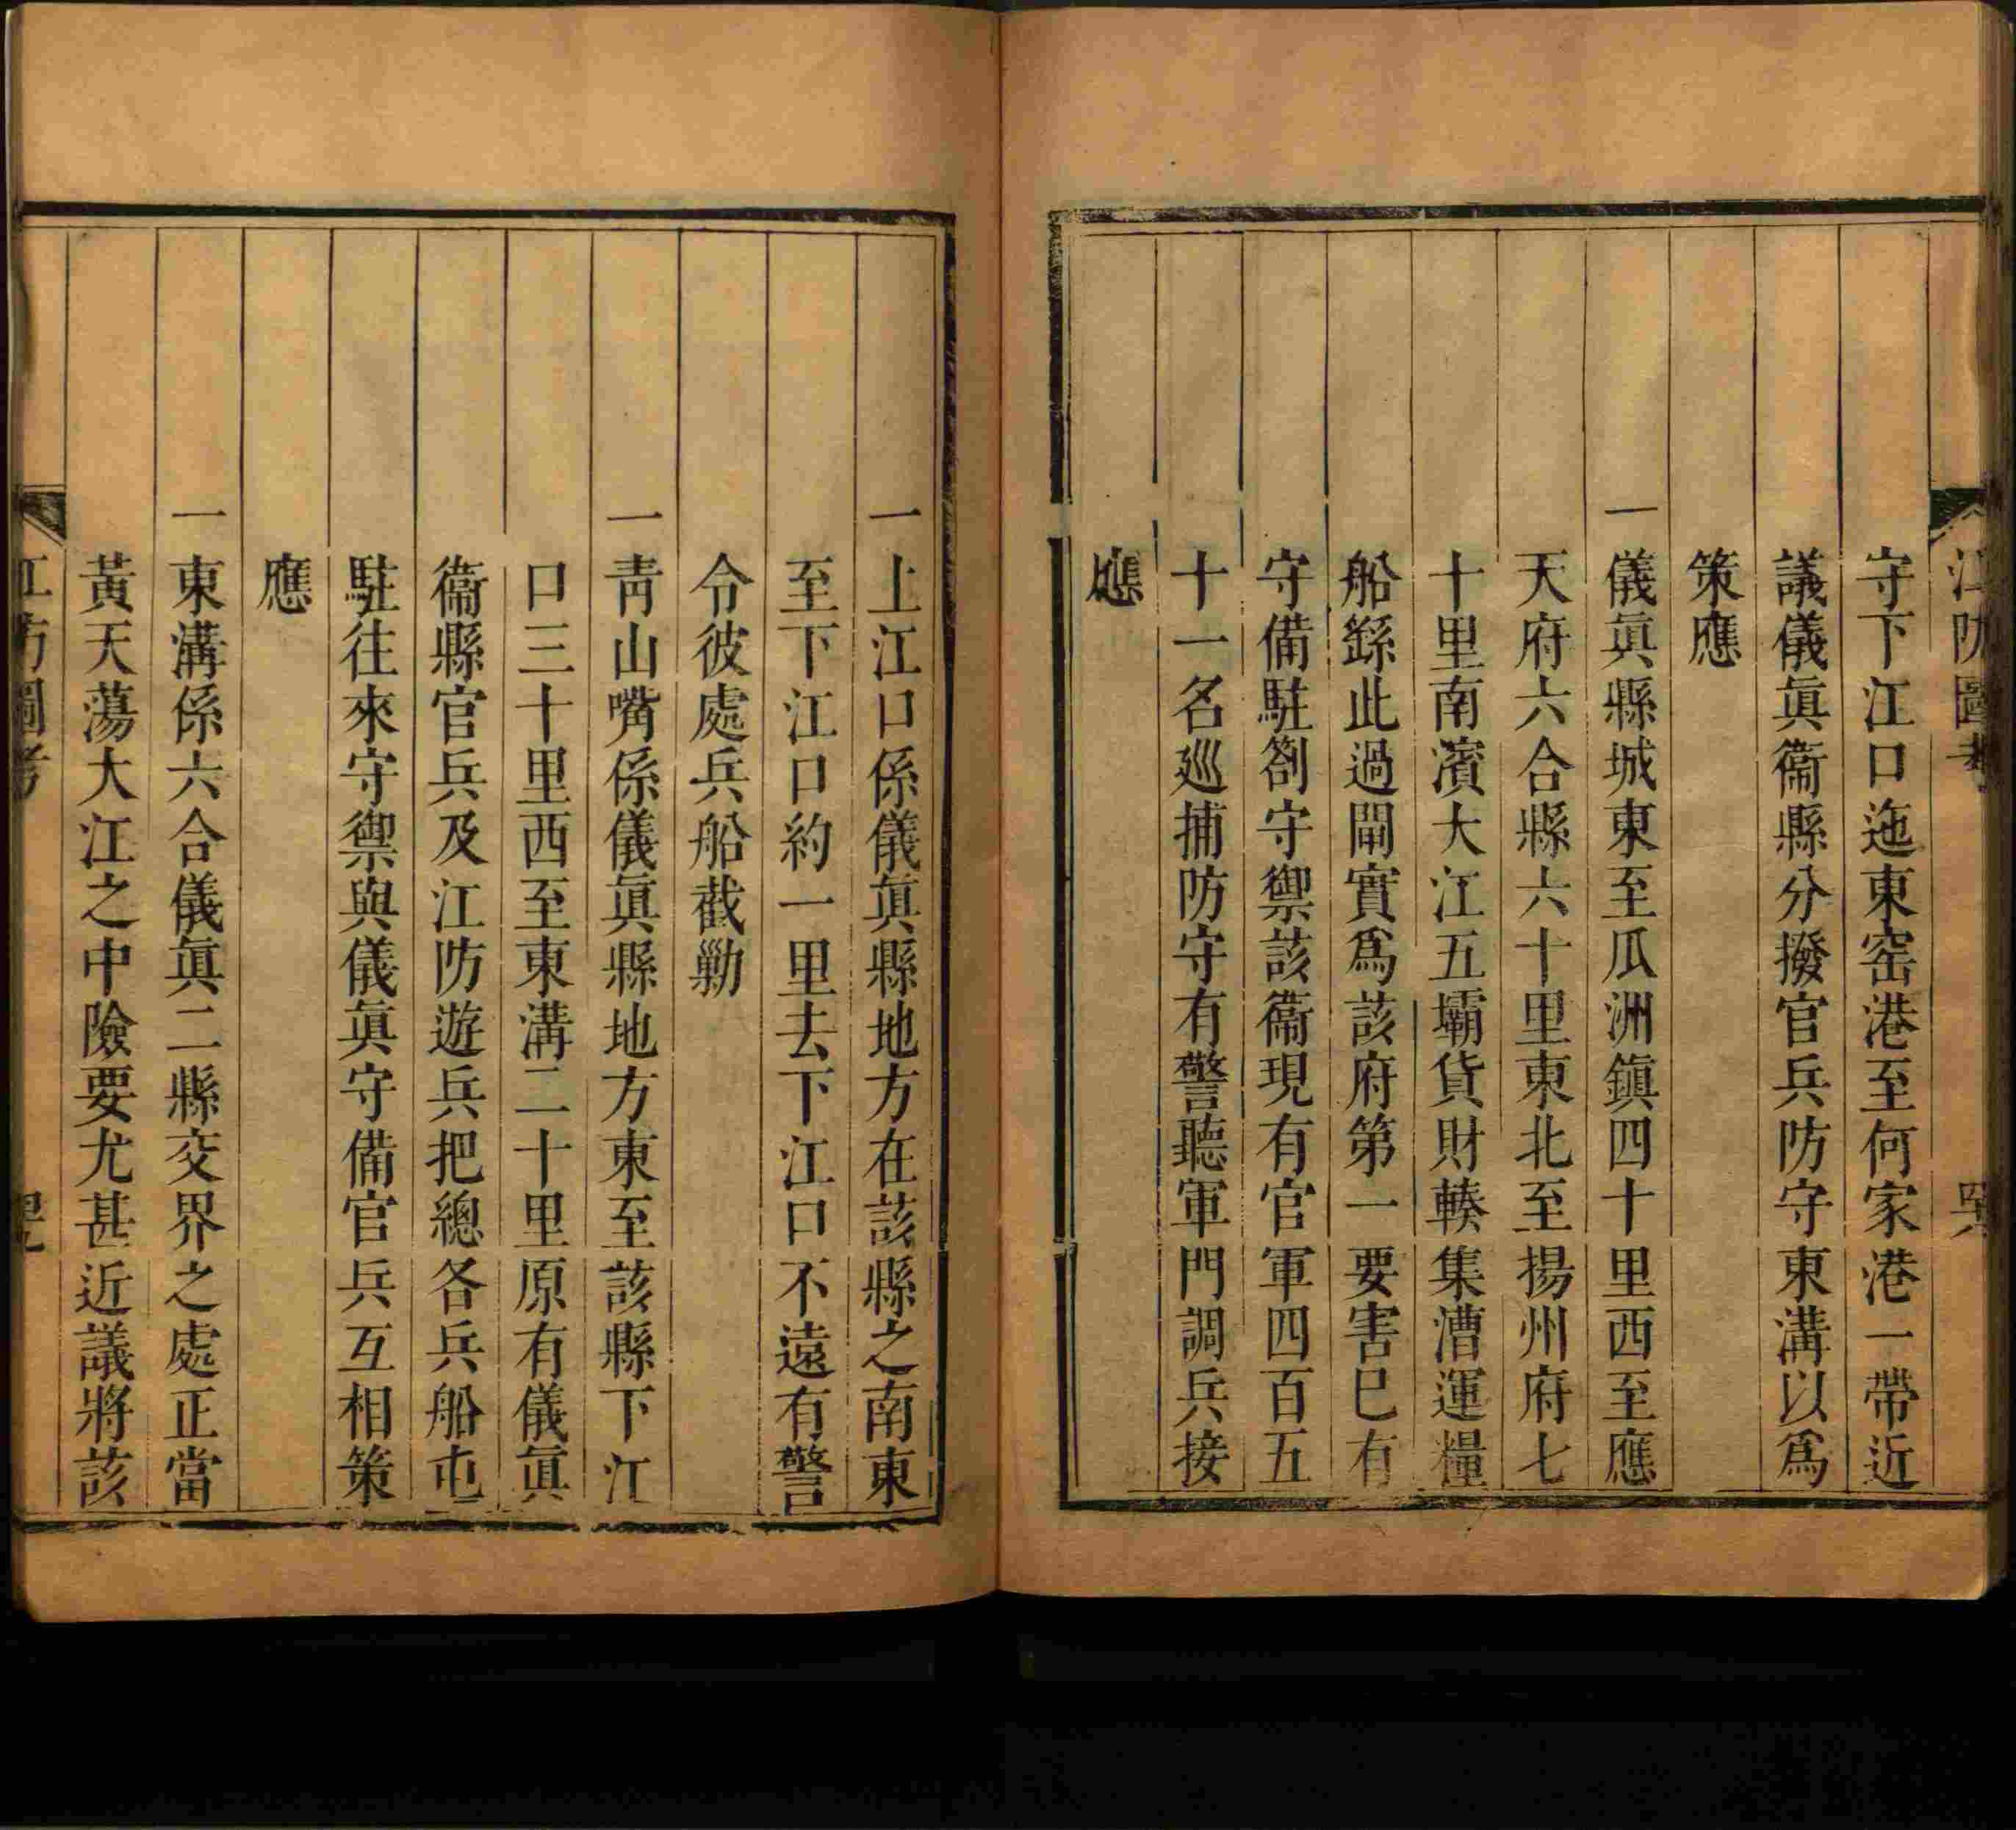 江防圖考
守下江口迤東窑港至何家港一帶近
議儀眞衞縣分撥官兵防守東溝以爲
策應
一儀眞縣城東至瓜洲鎭四十里西至應
天府六合縣六十里東北至揚州府七
十里南濱大江五壩貨財輳集漕運糧
船繇此過閘實爲該府第一要害巳有
守備駐劄守禦該衞現有官軍四百五
十一名廵捕防守有警聽軍門調兵接
應
一上江口係儀眞縣地方在該縣之南東
至下江口約一里去下江口不遠有警
令彼處兵船截勦
一靑山嘴係儀眞縣地方東至該縣下江
口三十里西至東溝二十里原有儀眞
衞縣官兵及江防遊兵把總各兵船屯
駐往來守禦與儀眞守備官兵互相策
應
一東溝係六合儀眞二縣交界之處正當
黃天蕩大江之中險要尤甚近議將該
江防圖考